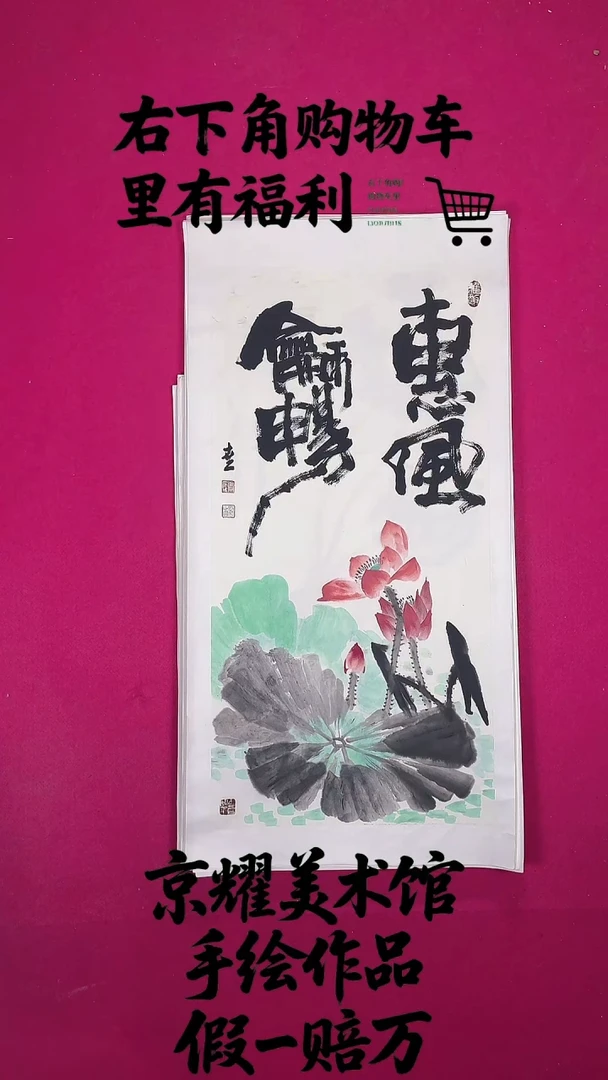 右下角购物车
里有福利
惠風
龢暢
京耀美术馆
手绘作品
假一赔万